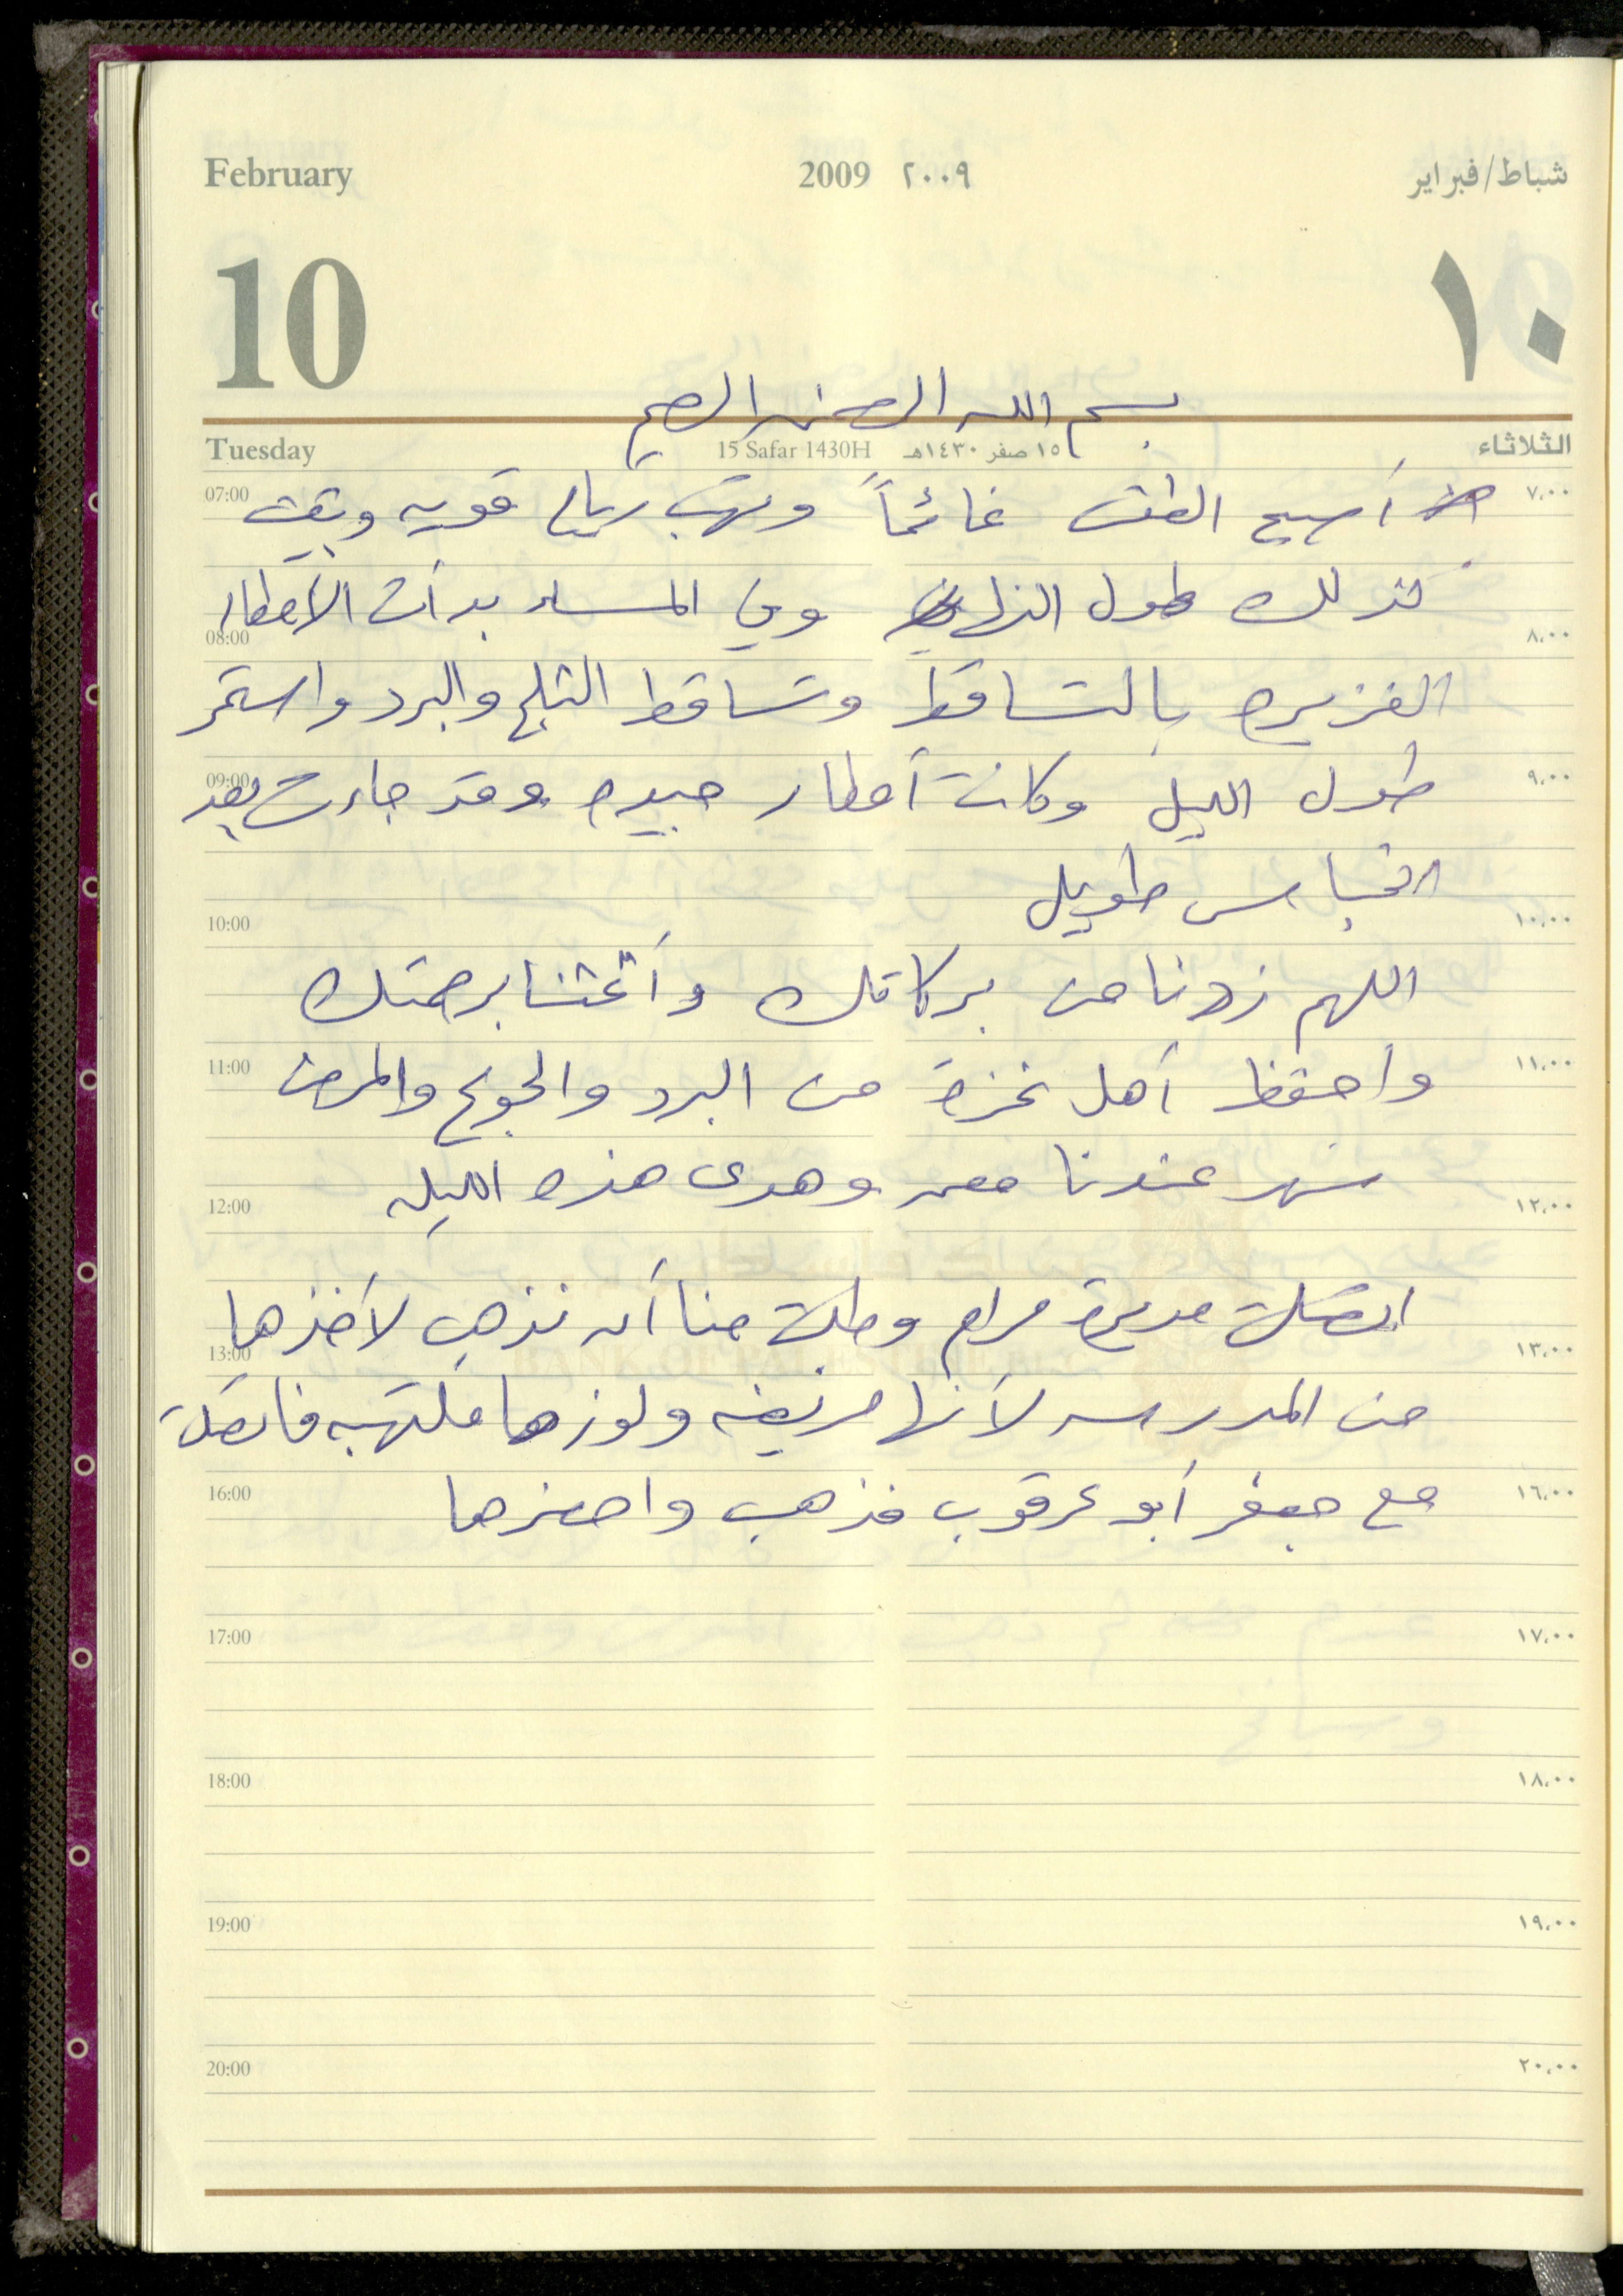 February 2009 ٢٠٠٩ شباط/فبراير
10 ١٠
بسم الله الرحمن الرحيم
Tuesday 15 Safar 1430H ١٥ صفر ١٤٣٠هـ الثلاثاء
07:00 أصبح الطقس غائماً وتهب رياح قويه وبقيت ٧،٠٠
كذلك طول النهار وفي المساء بدأت الأمطار
08:00 ٨،٠٠
الغزيره بالتساقط وتساقط الثلج والبرد واستمر
09:00 طول الليل وكانت أمطار جيده وقد جاءت بعد ٩،٠٠
انحباس طويل
10:00 ١٠،٠٠
اللهم زدنا من بركاتك وأغثنا برحمتك
11:00 واحفظ أهل غزة من البرد والجوع والمرض ١١،٠٠
سهر عندنا معمر وهدى هذه الليله
12:00 ١٢،٠٠
اتصلت مديرة مرام وطلبت منا أن نذهب لأخذها
13:00 BANK OF PALESTINE ١٣،٠٠
من المدرسه لأنها مريضه ولوزها ملتهبه فاتصلت
16:00 مع جعفر أبو عرقوب فذهب واحضرها ١٦،٠٠
17:00 ١٧،٠٠
18:00 ١٨،٠٠
19:00 ١٩،٠٠
20:00 ٢٠،٠٠